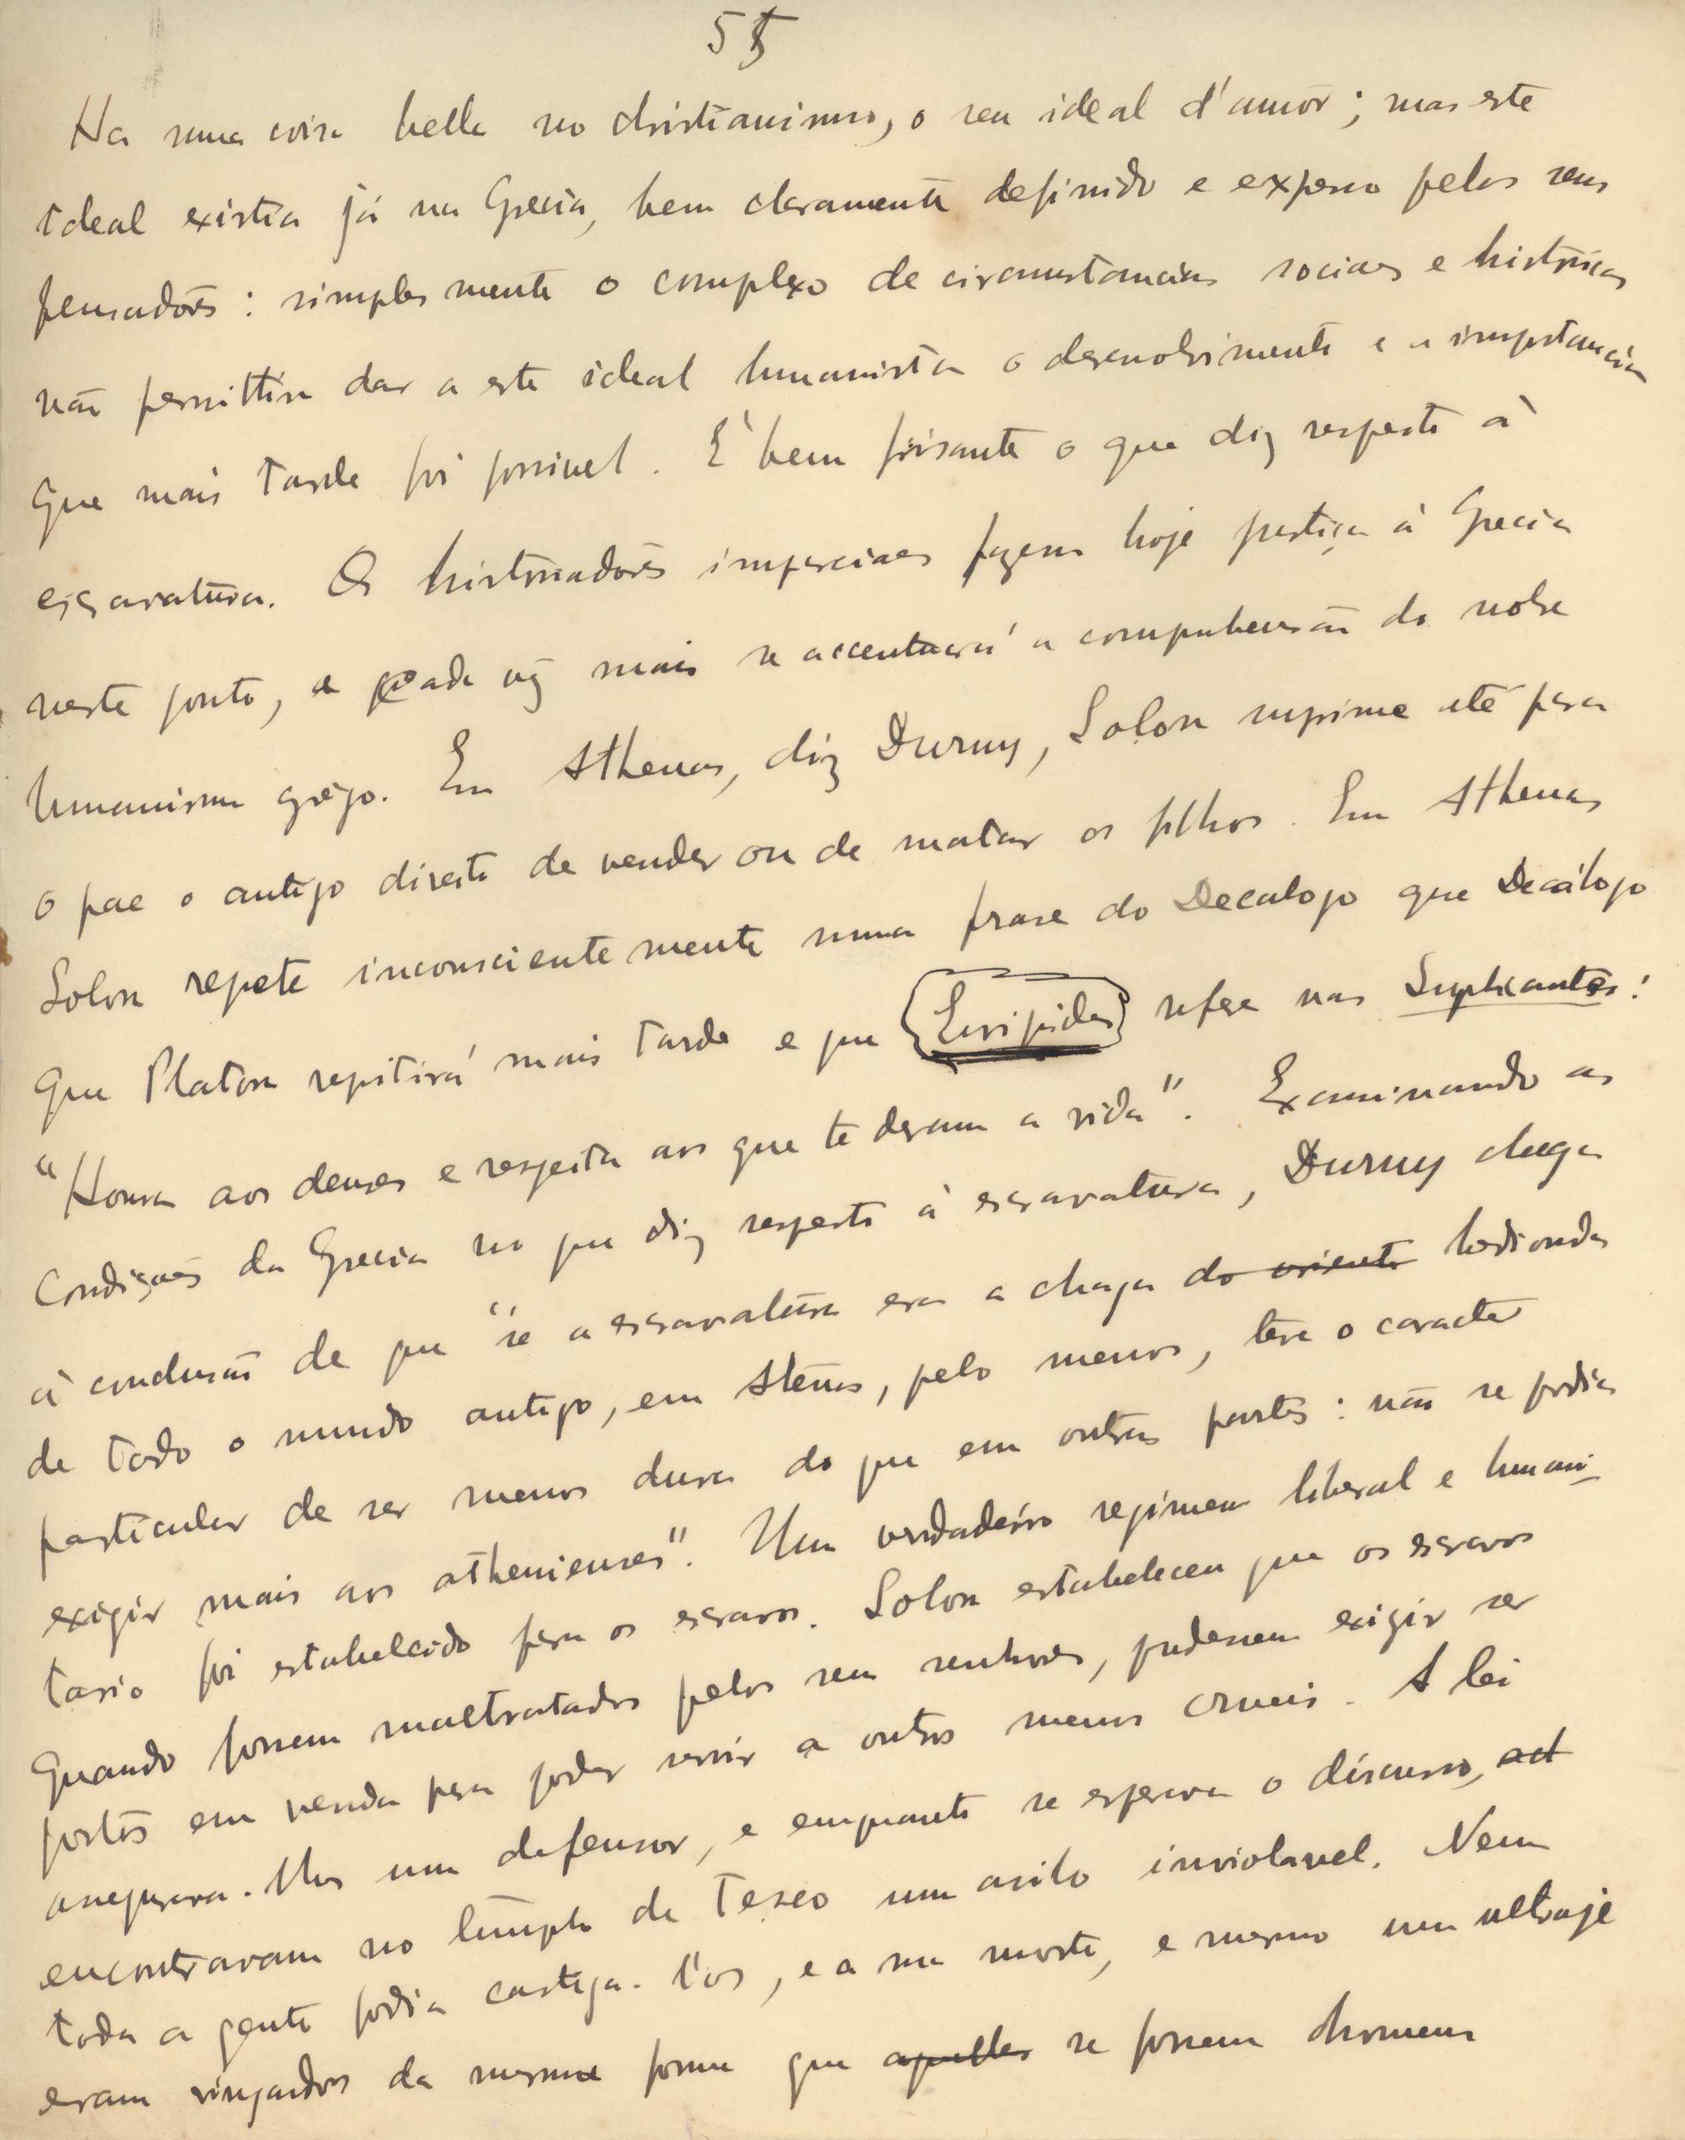 55
Ha uma coisa bella no christianismo, o seu ideal d'amor; mas este
ideal existia já na Grecia, bem claramente definido e exposto pelos seus
pensadores: simplesmente o complexo de circumstancias sociaes e historicas
não permittiu dar a este ideal humanista o desenvolvimento e a importancia
que mais tarde foi possivel. E' bem frisante o que diz respeito á
escravatura. Os historiadores imparciaes fazem hoje justiça á Grecia
neste ponto, e cada vez mais se accentuará a comprehensão do nobre
humanismo grego. Em Athenas, diz Duruy, Solon suprime até para
o pae o antigo direito de vender ou de matar os filhos. Em Athenas
Solon repete inconscientemente uma frase do Decalogo que Decálogo
que Platon repitirá mais tarde e que Euripides refere nas Suplicantes:
"Honra aos deuses e respeita aos que te deram a vida". Examinando as
condições da Grecia no que diz respeito á escravatura, Duruy chega
á conclusão de que "se a escravatura era a chaga do oriente hedionda
de todo o mundo antigo, em Atenas, pelo menos, teve o caracter
particular de ser menos dura do que em outras partes: não se podia
exigir mais aos athenienses". Um verdadeiro regimen liberal e humani-
tario foi estabelecido para os escravos. Solon estabeleceu que os escravos
quando fossem maltratados pelos seus senhores, pudessem exigir ser
postos em venda para poder servir a outros menos crueis. A lei
assegurava-lhes um defensor, e emquanto se esperava o discurso, act
encontravam no templo de Teseo um asilo inviolavel. Nem
toda a gente podia castiga-l'os, e a sua morte, e mesmo um ultraje
eram vingados da mesma forma que aquelles se fossem homens